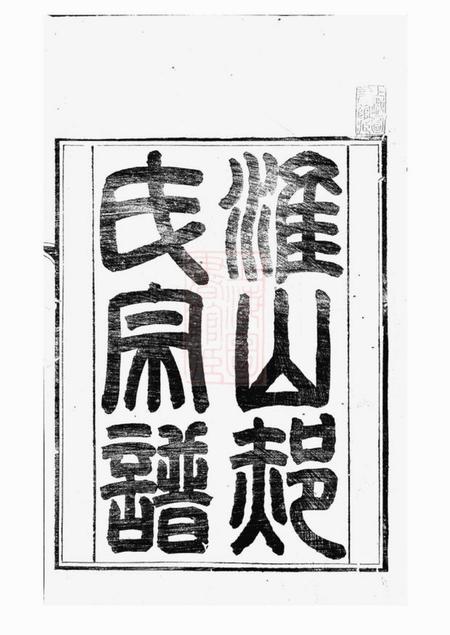 淮山郝
氏宗譜